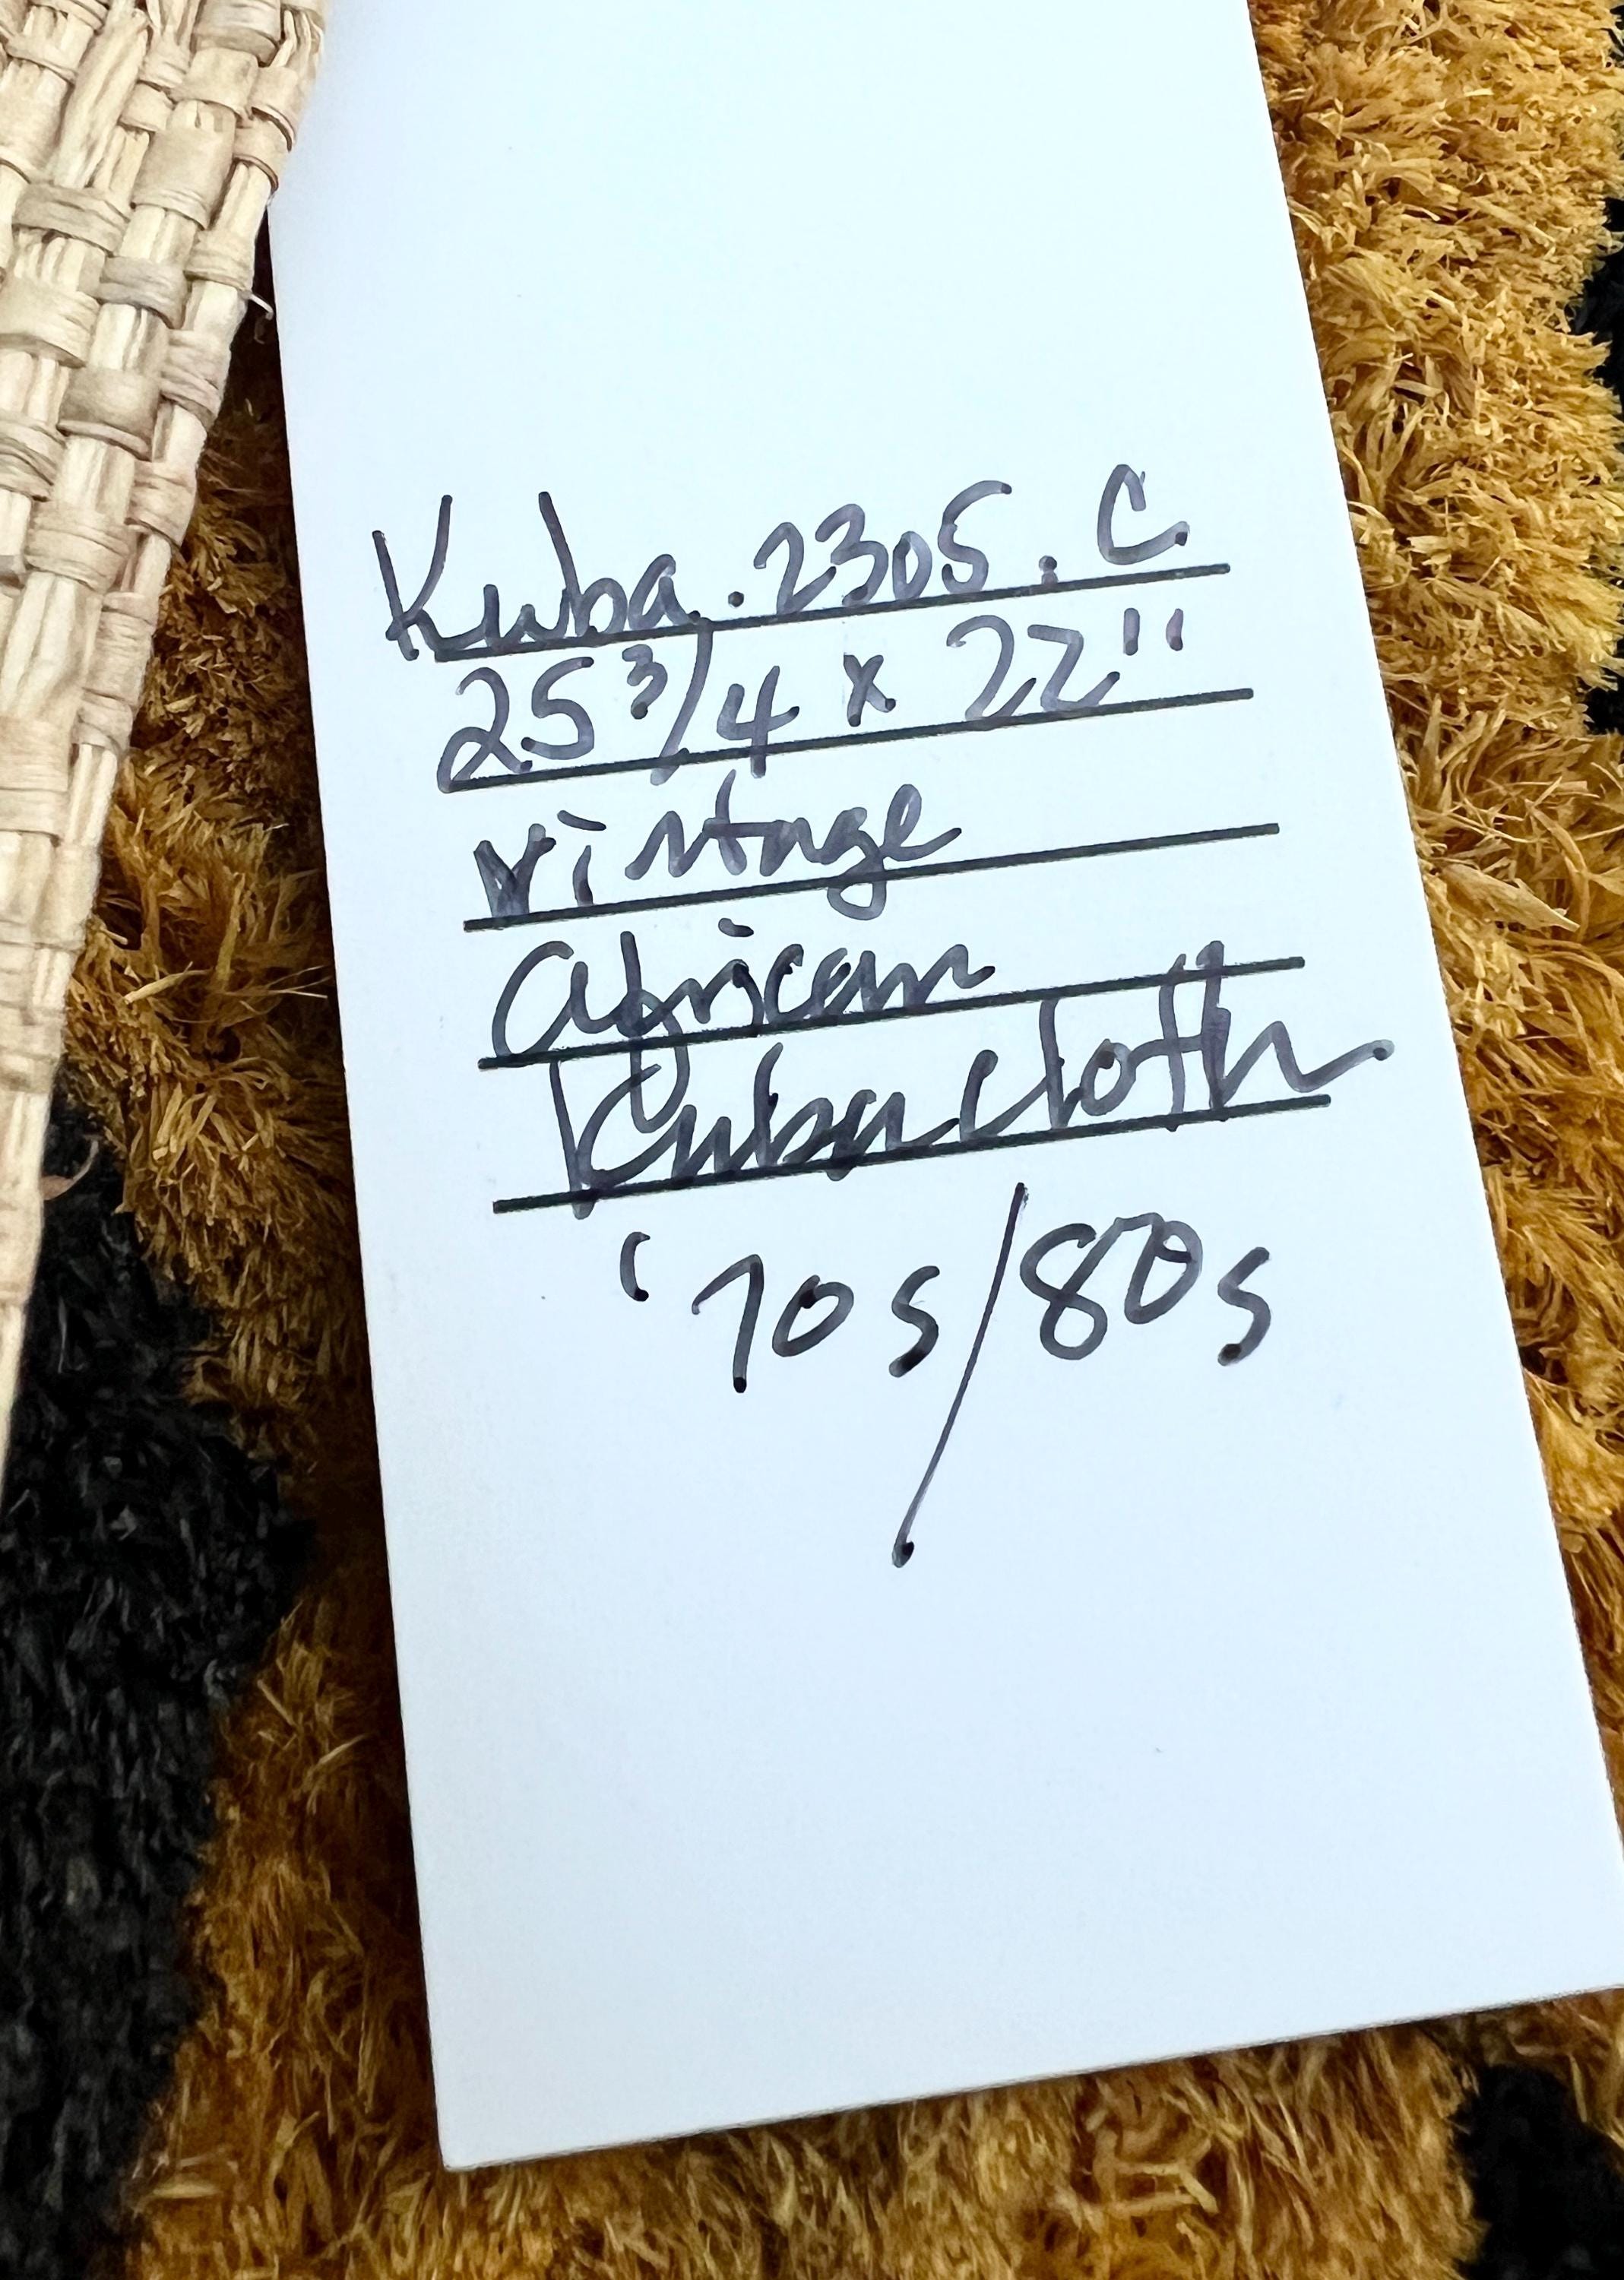 Kuba.2305.C
25 3/4 x 22"
Vintage
African
Kuba cloth
'70s/80s